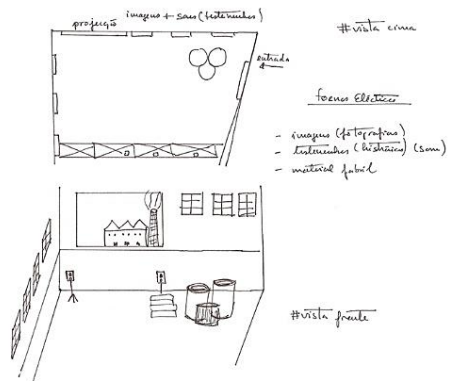 imagens + sons (testemunhos)
projecção
#vista cima
entrada
fornos eléctricos
- imagens (fotografias)
- testemunhos (histórias) (som)
- material fabril
#vista frente